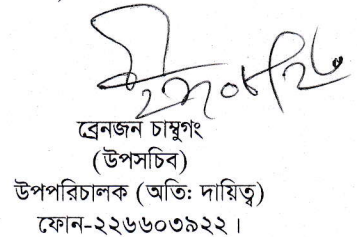 ব্রেনজন চাম্বুগং
(উপসচিব)
উপপরিচালক (অতি: দায়িত্ব)
ফোন-২২৬৬০৩৯২২।